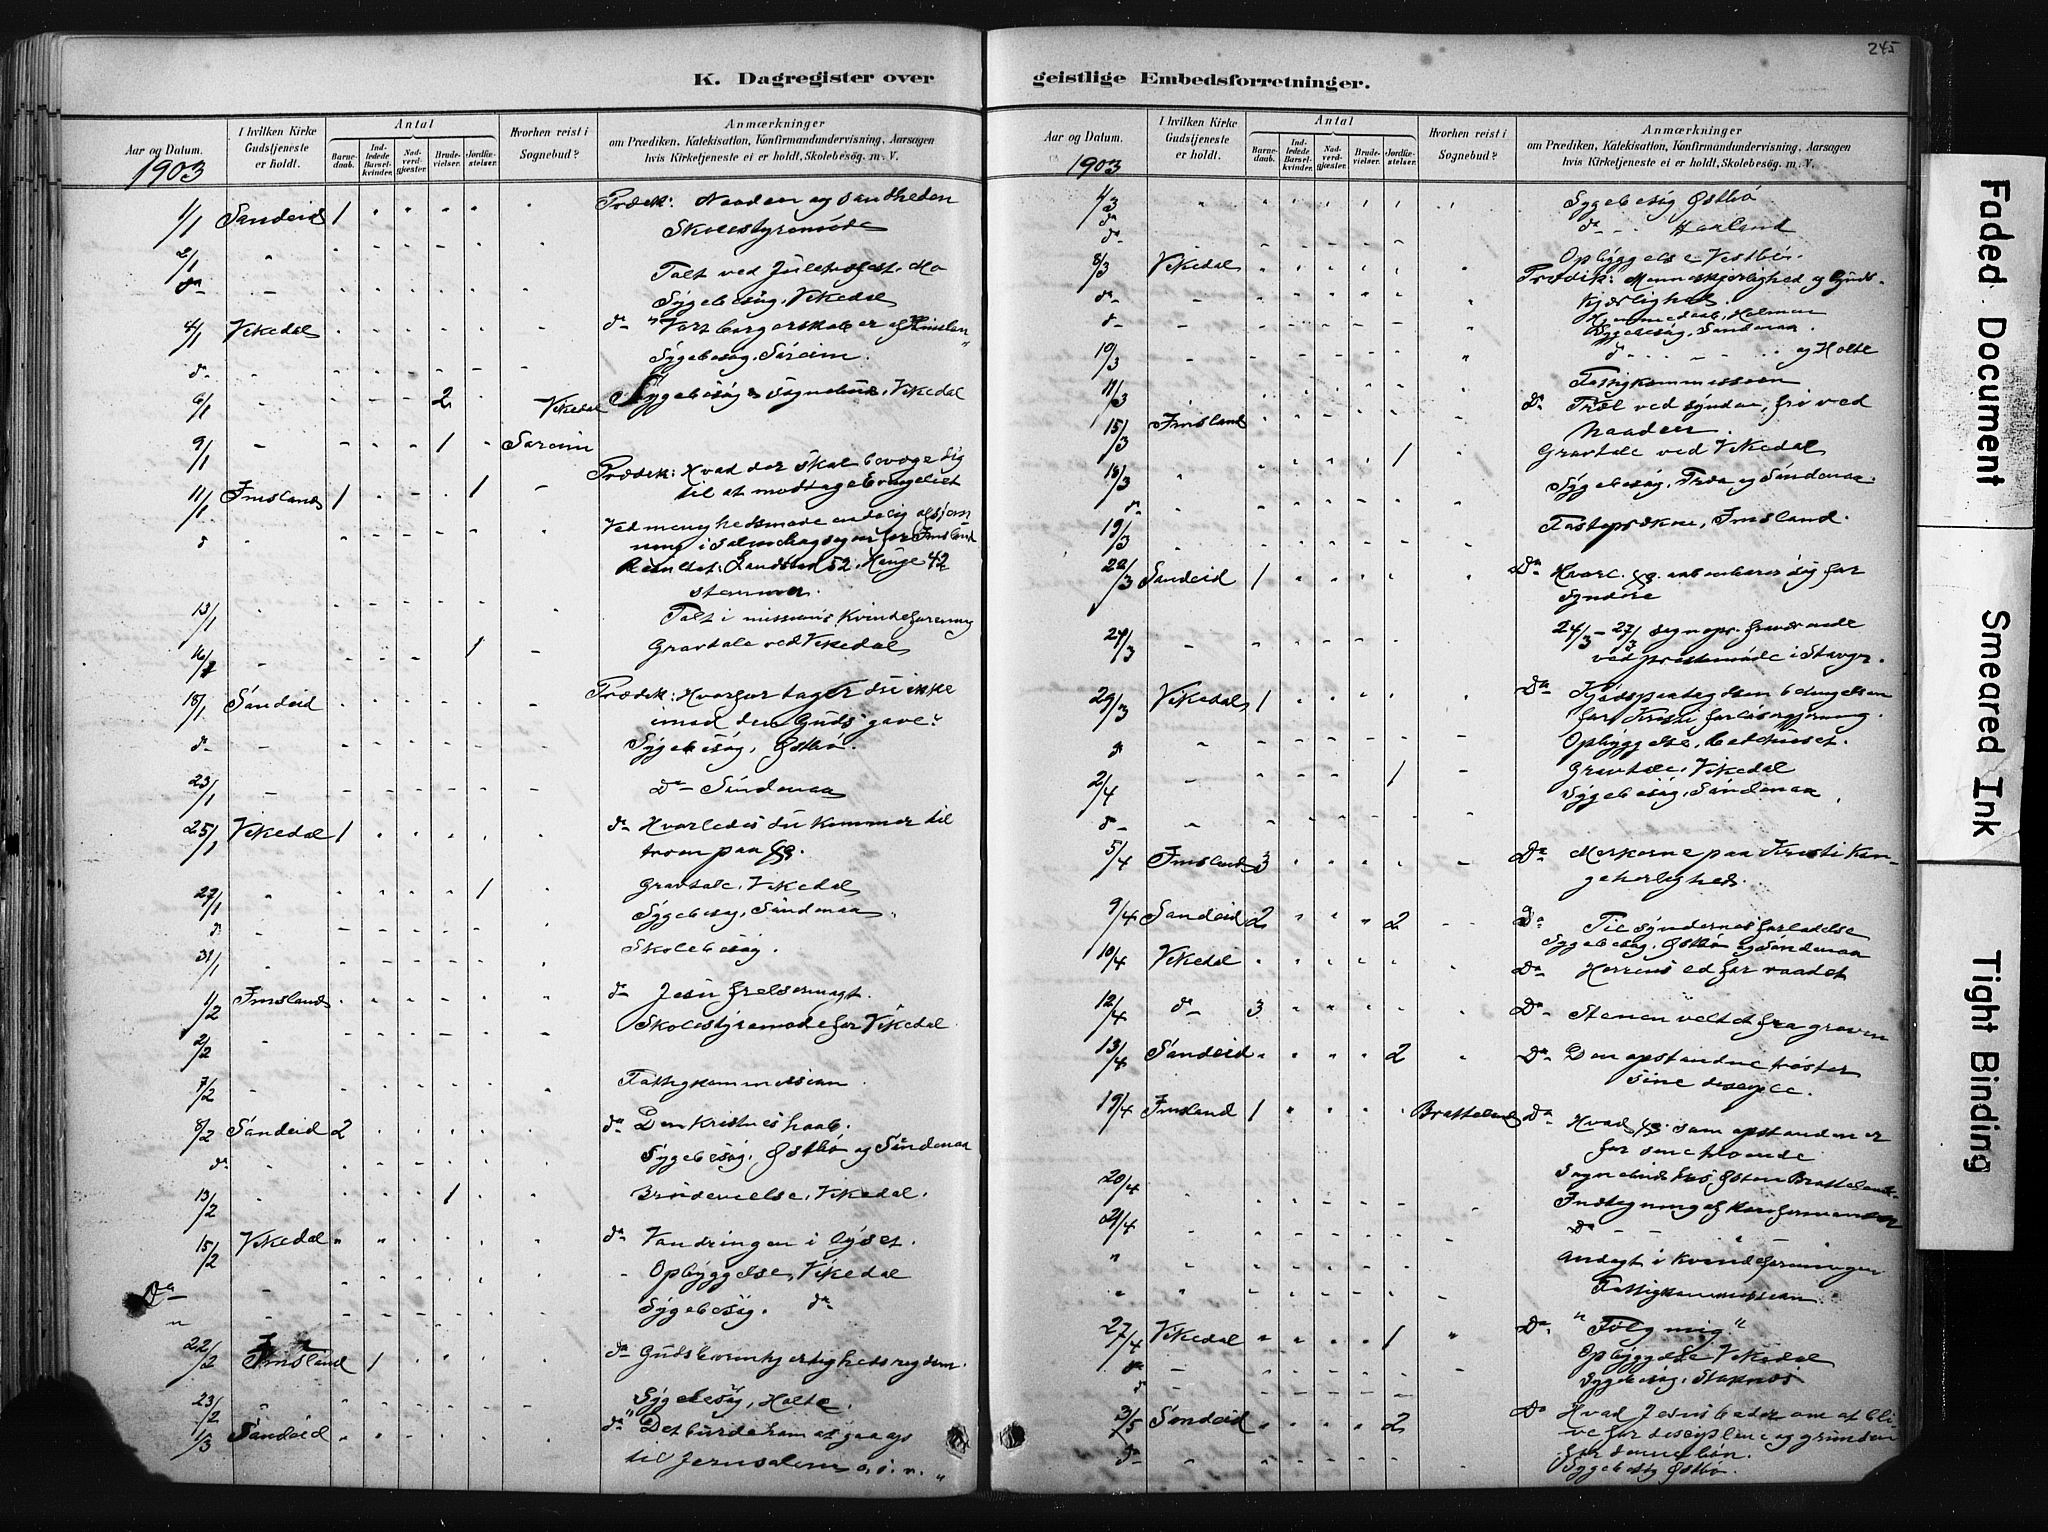 245
K. Dagregister over
geistlige Embedsforretninger.
Aar og Datum.
I hvilken Kirke Gudstjeneste er holdt.
Antal
Barnedaab.
Indledede Barselkvinder.
Nadverdgjester.
Brudevielser.
Jordfæstelser.
Hvorhen reist i Sognebud?
Anmærkninger
om Prædiken, Katekisation, Konfirmandundervisning, Aarsagen
hvis Kirketjeneste ei er holdt, Skolebesøg. m. V.
1903
1/1 Sandeid 1 Prædik: Naaden og Sandheden
Skolestyremøde
2/1 Talt ved Juletræfest. Mo
da Sygebesøg. Vikedal
4/1 Vikedal da "Vort borgerskab er af Himlen"
da Sygebesøg. Søreim.
6/1 2 Vikedal Sygebesøg & Sognebud, Vikedal
9/1 1 Søreim
11/1 Imsland 1 1 Prædik: Hvad der skal bevæge dig
til at modtage Evangeliet
Ved menighedsmøde endelig afstem
ning i salmebogsagen for Imsland
Resultat: Landstad 52. Hauge 42
stemmer.
13/1 Talt i missions Kvindeforening
16/1 1 Gravtale ved Vikedal
18/1 Sandeid Prædik: Hvorfor tager du ikke
imod den Guds gave?
da Sygebesøg, Østbø.
23/1 Da Søndenaa
25/1 Vikedal 1 da Hvorledes du kommer til
troen paa
27/1 1 Gravtale. Vikedal
da Sygebesøg, Søndenaa
31/1 Skolebesøg.
1/2 Imsland da Jesu frelsermagt.
2/2 Skolestyremøde for Vikedal
7/2 Fattigkommission.
8/2 Sandeid 2 da Den kristnes haab.
da Sygebesøg. Østbø og Søndenaa
13/2 1 Brudevielse, Vikedal.
15/2 Vikedal da Vandringen i lyset.
Da Opbyggelse, Vikedal
" Sygebesøg. da
22/2 Imsland 1 da Guds
23/2 Sygebesøg, Holte.
1/3 Sandeid da "Det burde ham at gaa op
til Jerusalem o. s. v."
Aar og Datum.
I hvilken Kirke Gudstjeneste er holdt.
Antal
Barnedaab.
Indledede Barselkvinder.
Nadverdgjester.
Brudevielser.
Jordfæstelser.
Hvorhen reist i Sognebud?
Anmærkninger
om Prædiken, Katekisation, Konfirmandundervisning, Aarsagen
hvis Kirketjeneste ei er holdt, Skolebesøg. m. V.
1903
4/3 Sygebesøg Østbø
da da
da Opbyggelse Vestbø.
8/3 Vikedal Prædik: Menneskjærlighed og Guds-
kjærlighed.
da Hjemmedaab, Holmen
da Sygebesøg, Søndenaa.
10/3 da og Holte
11/3 Fattigkommission
15/3 Imsland Da Træl ved synden, fri ved
naaden.
18/3 1 Gravtale ved Vikedal
da Sygebesøg, og Søndenaa.
19/3 Fasteprækne, Imsland.
22/3 Sandeid 1 Da aabenbarer sig for
syndere
24/3 24/3 - 27/3 sognepr. fraværende
ved prestemøde i Stavgr.
29/3 Vikedal 1 Da betingelsen
for Kristi forløsergjerning.
da Opbyggelse, Bedehuset.
2/4 1 Gravtale, Vikedal
da Sygebesøg, Søndenaa
5/4 Imsland 3 Da Merkerne paa Kristi kon-
geherlighed.
9/4 Sandeid 2 2 Da Til syndernes forladelse
Sygebesøg, Østbø og Søndenaa
10/4 Vikedal Da Herrens ed for raadet
12/4 da 3 Da Stenen veltet fra graven
13/4 Sandeid 2 Da Den opstandne trøster
sine disciple.
19/4 Imsland 1 Bratteland Da Hvad som opstanden er
for sine troende
20/4 Sognebud hos Bratteland
21/4 Indtegning af Konfirmander
Da
" Andagt i Kvindeforeningen
" Fattigkommission
27/4 Vikedal 1 Da "Følg mig"
da Opbyggelse Vikedal
da Sygebesøg. Stapnes
3/5 Sandeid 2 Da Hvad Jesus beder om at bli-
ve for disciplene og grunden
for denne bøn.
da Sygebesøg Østbø.
Faded Document
Smeared Ink
Tight Binding